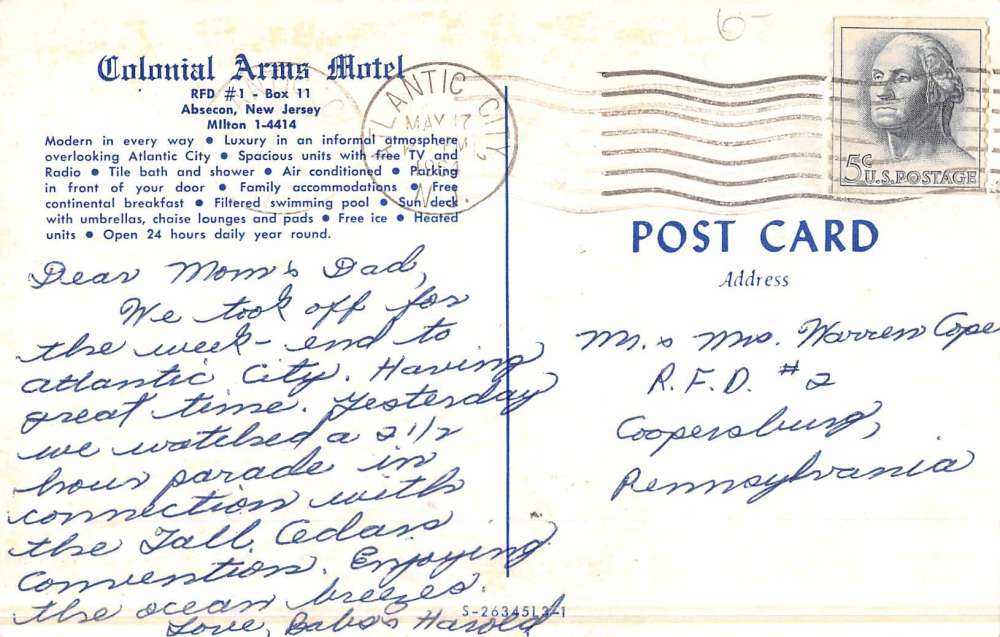 6-
Colonial Arms Motel
RFD #1 - Box 11
Absecon, New Jersey
MIlton 1-4414
Modern in every way • Luxury in an informal atmosphere
overlooking Atlantic City • Spacious units with free TV and
Radio • Tile bath and shower • Air conditioned • Parking
in front of your door • Family accommodations • Free
continental breakfast • Filtered swimming pool • Sun deck
with umbrellas, chaise lounges and pads • Free ice • Heated
units • Open 24 hours daily year round.
ATLANTIC CITY
MAY 17
PM
N.
5¢ U.S. POSTAGE
POST CARD
Address
Dear Mom & Dad,
We took off for
the week-end to
Atlantic City. Having
great time. Yesterday
we watched a 2 1/2
hour parade in
connection with
the Tall Cedars
Convention. Enjoying
the ocean breezes.
Love, Babs & Harold
Mr. & Mrs. Warren Cope
R.F.D. #2
Coopersburg,
Pennsylvania
S-26345L3-1